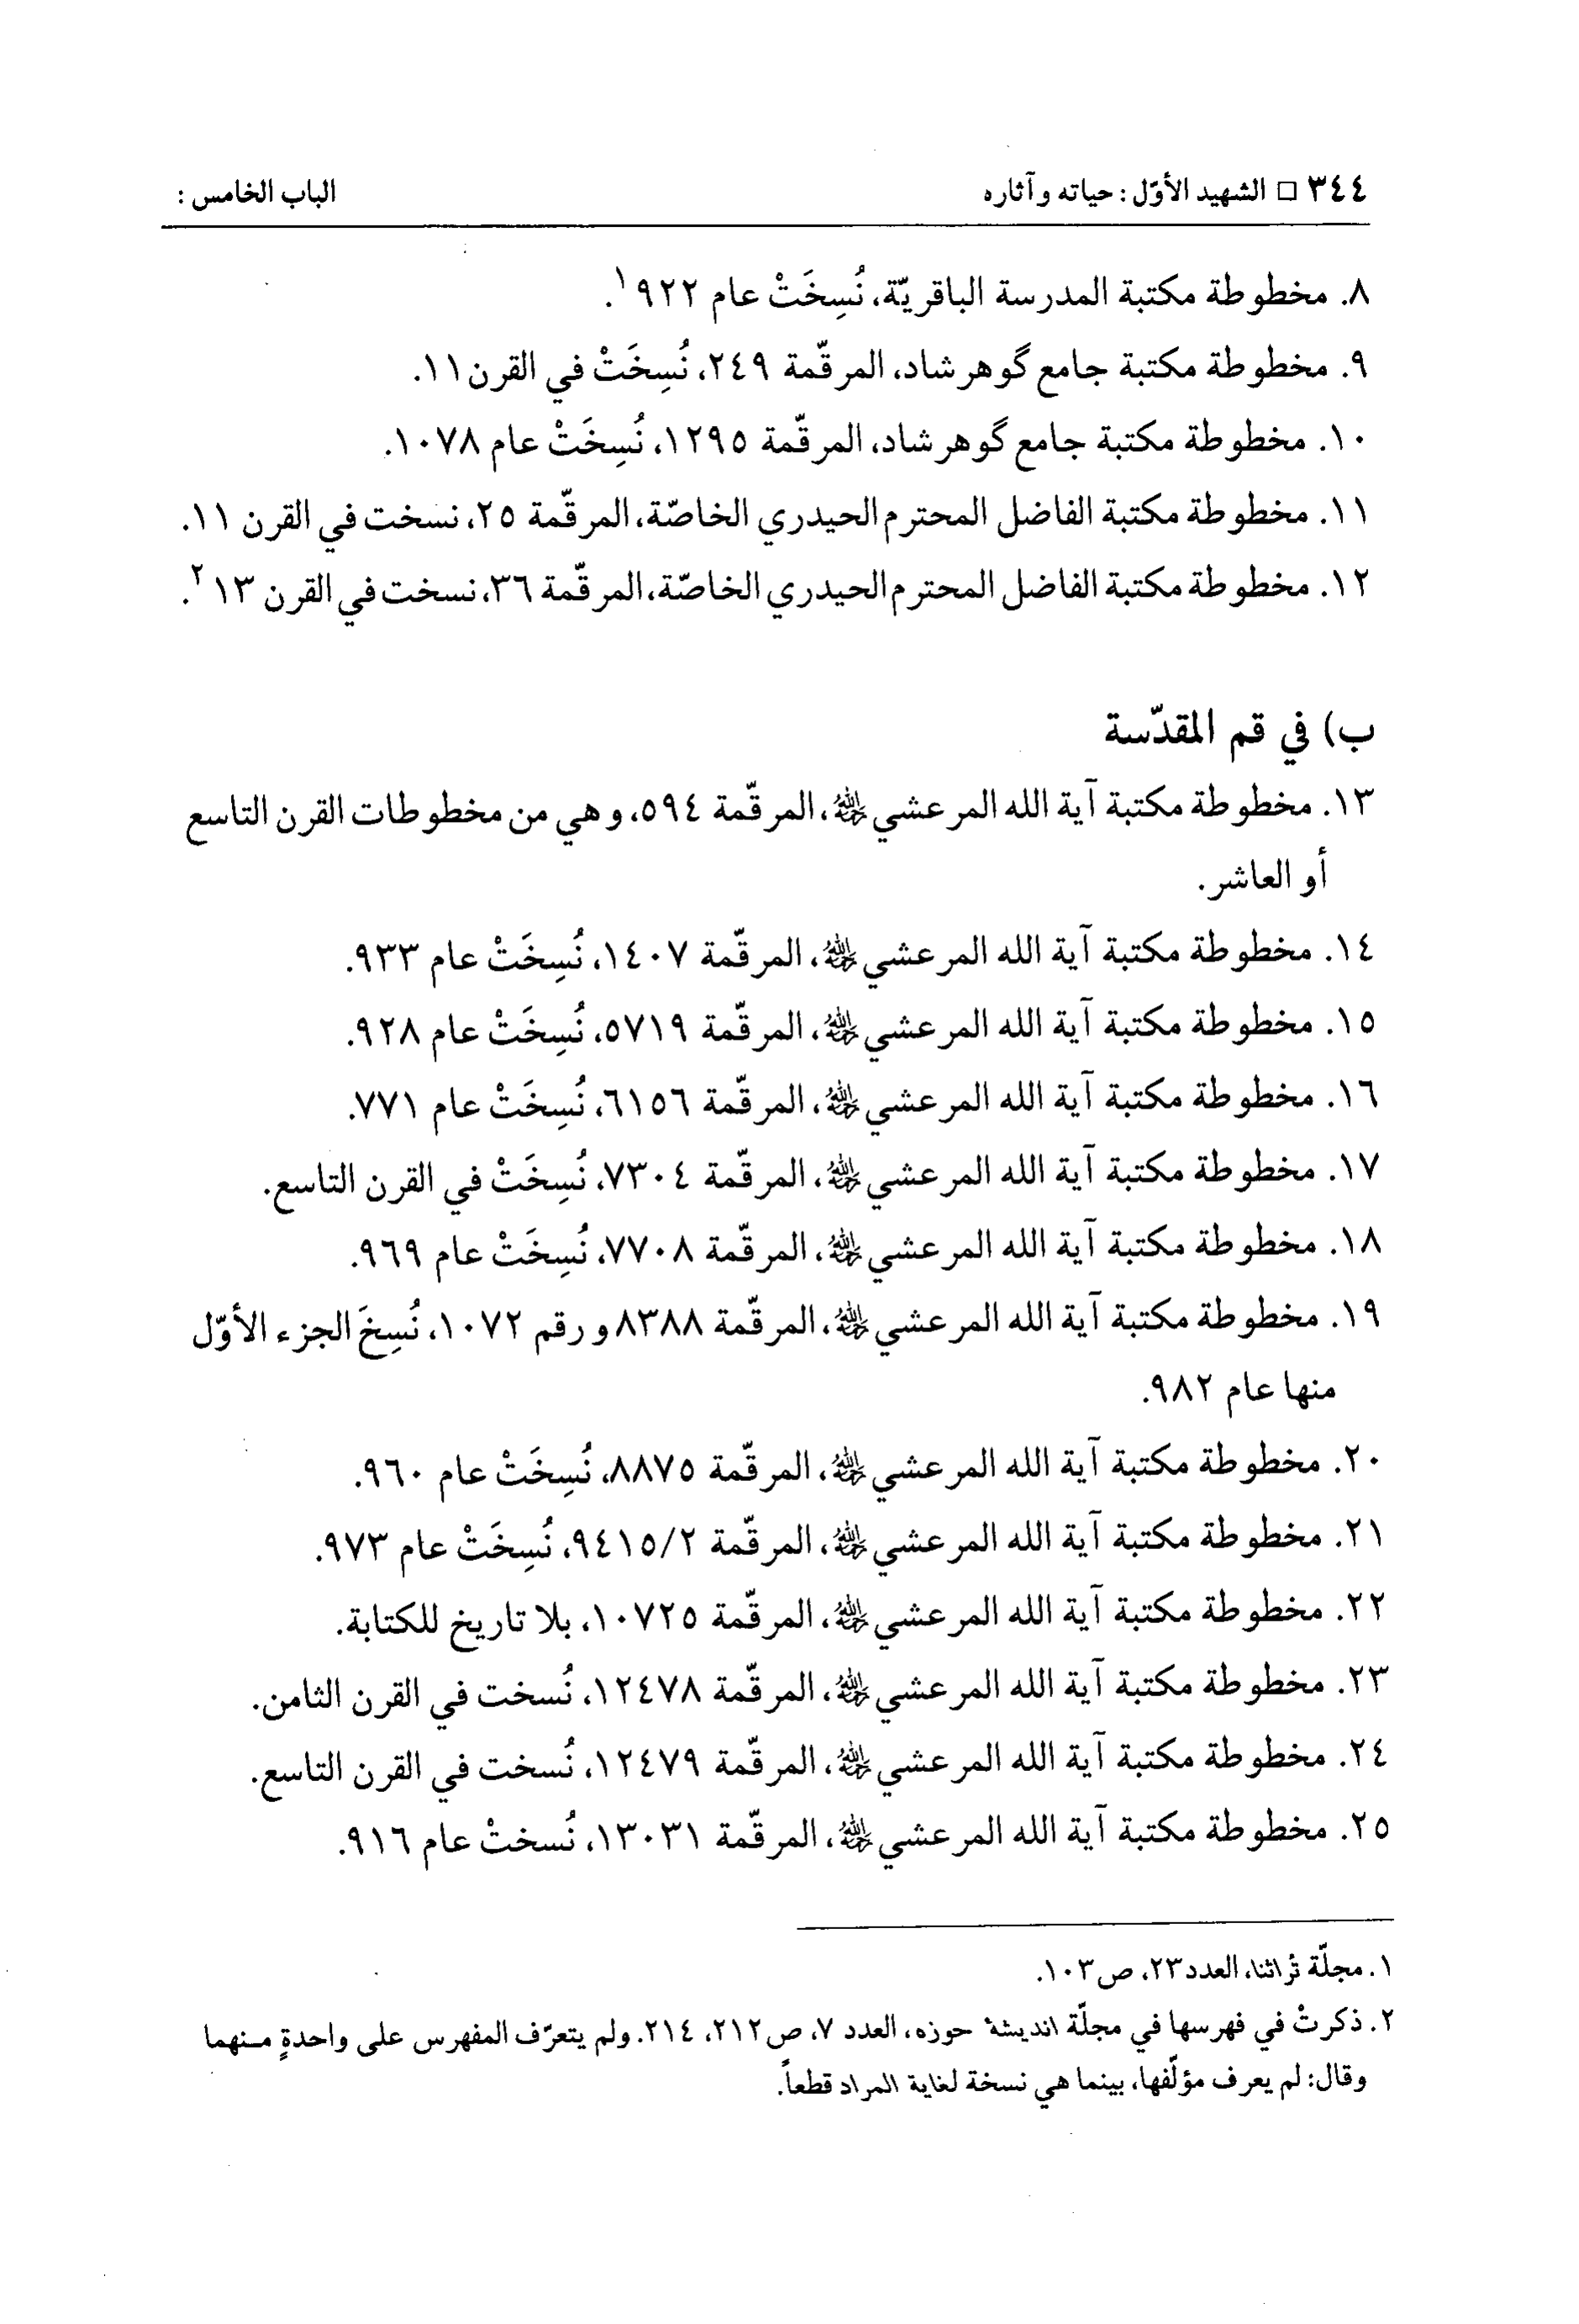 ٣٤٤ □ الشهيد الأوّل : حياته وآثاره
الباب الخامس :
٨. مخطوطة مكتبة المدرسة الباقريّة، نُسِخَتْ عام ٩٢٢١.
٩. مخطوطة مكتبة جامع گوهرشاد، المرقّمة ٢٤٩، نُسِخَتْ في القرن ١١.
١٠. مخطوطة مكتبة جامع گوهرشاد، المرقّمة ١٢٩٥، نُسِخَتْ عام ١٠٧٨.
١١. مخطوطة مكتبة الفاضل المحترم الحيدري الخاصّة، المرقّمة ٢٥، نسخت في القرن ١١.
١٢. مخطوطة مكتبة الفاضل المحترم الحيدري الخاصّة، المرقّمة ٣٦، نسخت في القرن ١٣ ٢.
ب) في قم المقدّسة
١٣. مخطوطة مكتبة آية الله المرعشي ﷫، المرقّمة ٥٩٤، وهي من مخطوطات القرن التاسع
أو العاشر.
١٤. مخطوطة مكتبة آية الله المرعشي ﷫، المرقّمة ١٤٠٧، نُسِخَتْ عام ٩٣٣.
١٥. مخطوطة مكتبة آية الله المرعشي ﷫، المرقّمة ٥٧١٩، نُسِخَتْ عام ٩٢٨.
١٦. مخطوطة مكتبة آية الله المرعشي ﷫، المرقّمة ٦١٥٦، نُسِخَتْ عام ٧٧١.
١٧. مخطوطة مكتبة آية الله المرعشي ﷫، المرقّمة ٧٣٠٤، نُسِخَتْ في القرن التاسع.
١٨. مخطوطة مكتبة آية الله المرعشي ﷫، المرقّمة ٧٧٠٨، نُسِخَتْ عام ٩٦٩.
١٩. مخطوطة مكتبة آية الله المرعشي ﷫، المرقّمة ٨٣٨٨ و رقم ١٠٧٢، نُسِخَ الجزء الأوّل
منها عام ٩٨٢.
٢٠. مخطوطة مكتبة آية الله المرعشي ﷫، المرقّمة ٨٨٧٥، نُسِخَتْ عام ٩٦٠.
٢١. مخطوطة مكتبة آية الله المرعشي ﷫، المرقّمة ٩٤١٥/٢، نُسِخَتْ عام ٩٧٣.
٢٢. مخطوطة مكتبة آية الله المرعشي ﷫، المرقّمة ١٠٧٢٥، بلا تاريخ للكتابة.
٢٣. مخطوطة مكتبة آية الله المرعشي ﷫، المرقّمة ١٢٤٧٨، نُسخت في القرن الثامن.
٢٤. مخطوطة مكتبة آية الله المرعشي ﷫، المرقّمة ١٢٤٧٩، نُسخت في القرن التاسع.
٢٥. مخطوطة مكتبة آية الله المرعشي ﷫، المرقّمة ١٣٠٣١، نُسختْ عام ٩١٦.
١. مجلّة تُراثنا، العدد ٢٣، ص ١٠٣.
٢. ذكرتْ في فهرسها في مجلّة انديشهٔ حوزه، العدد ٧، ص ٢١٢، ٢١٤. ولم يتعرّف المفهرس على واحدةٍ منهما
وقال: لم يعرف مؤلّفها، بينما هي نسخة لغاية المراد قطعاً.